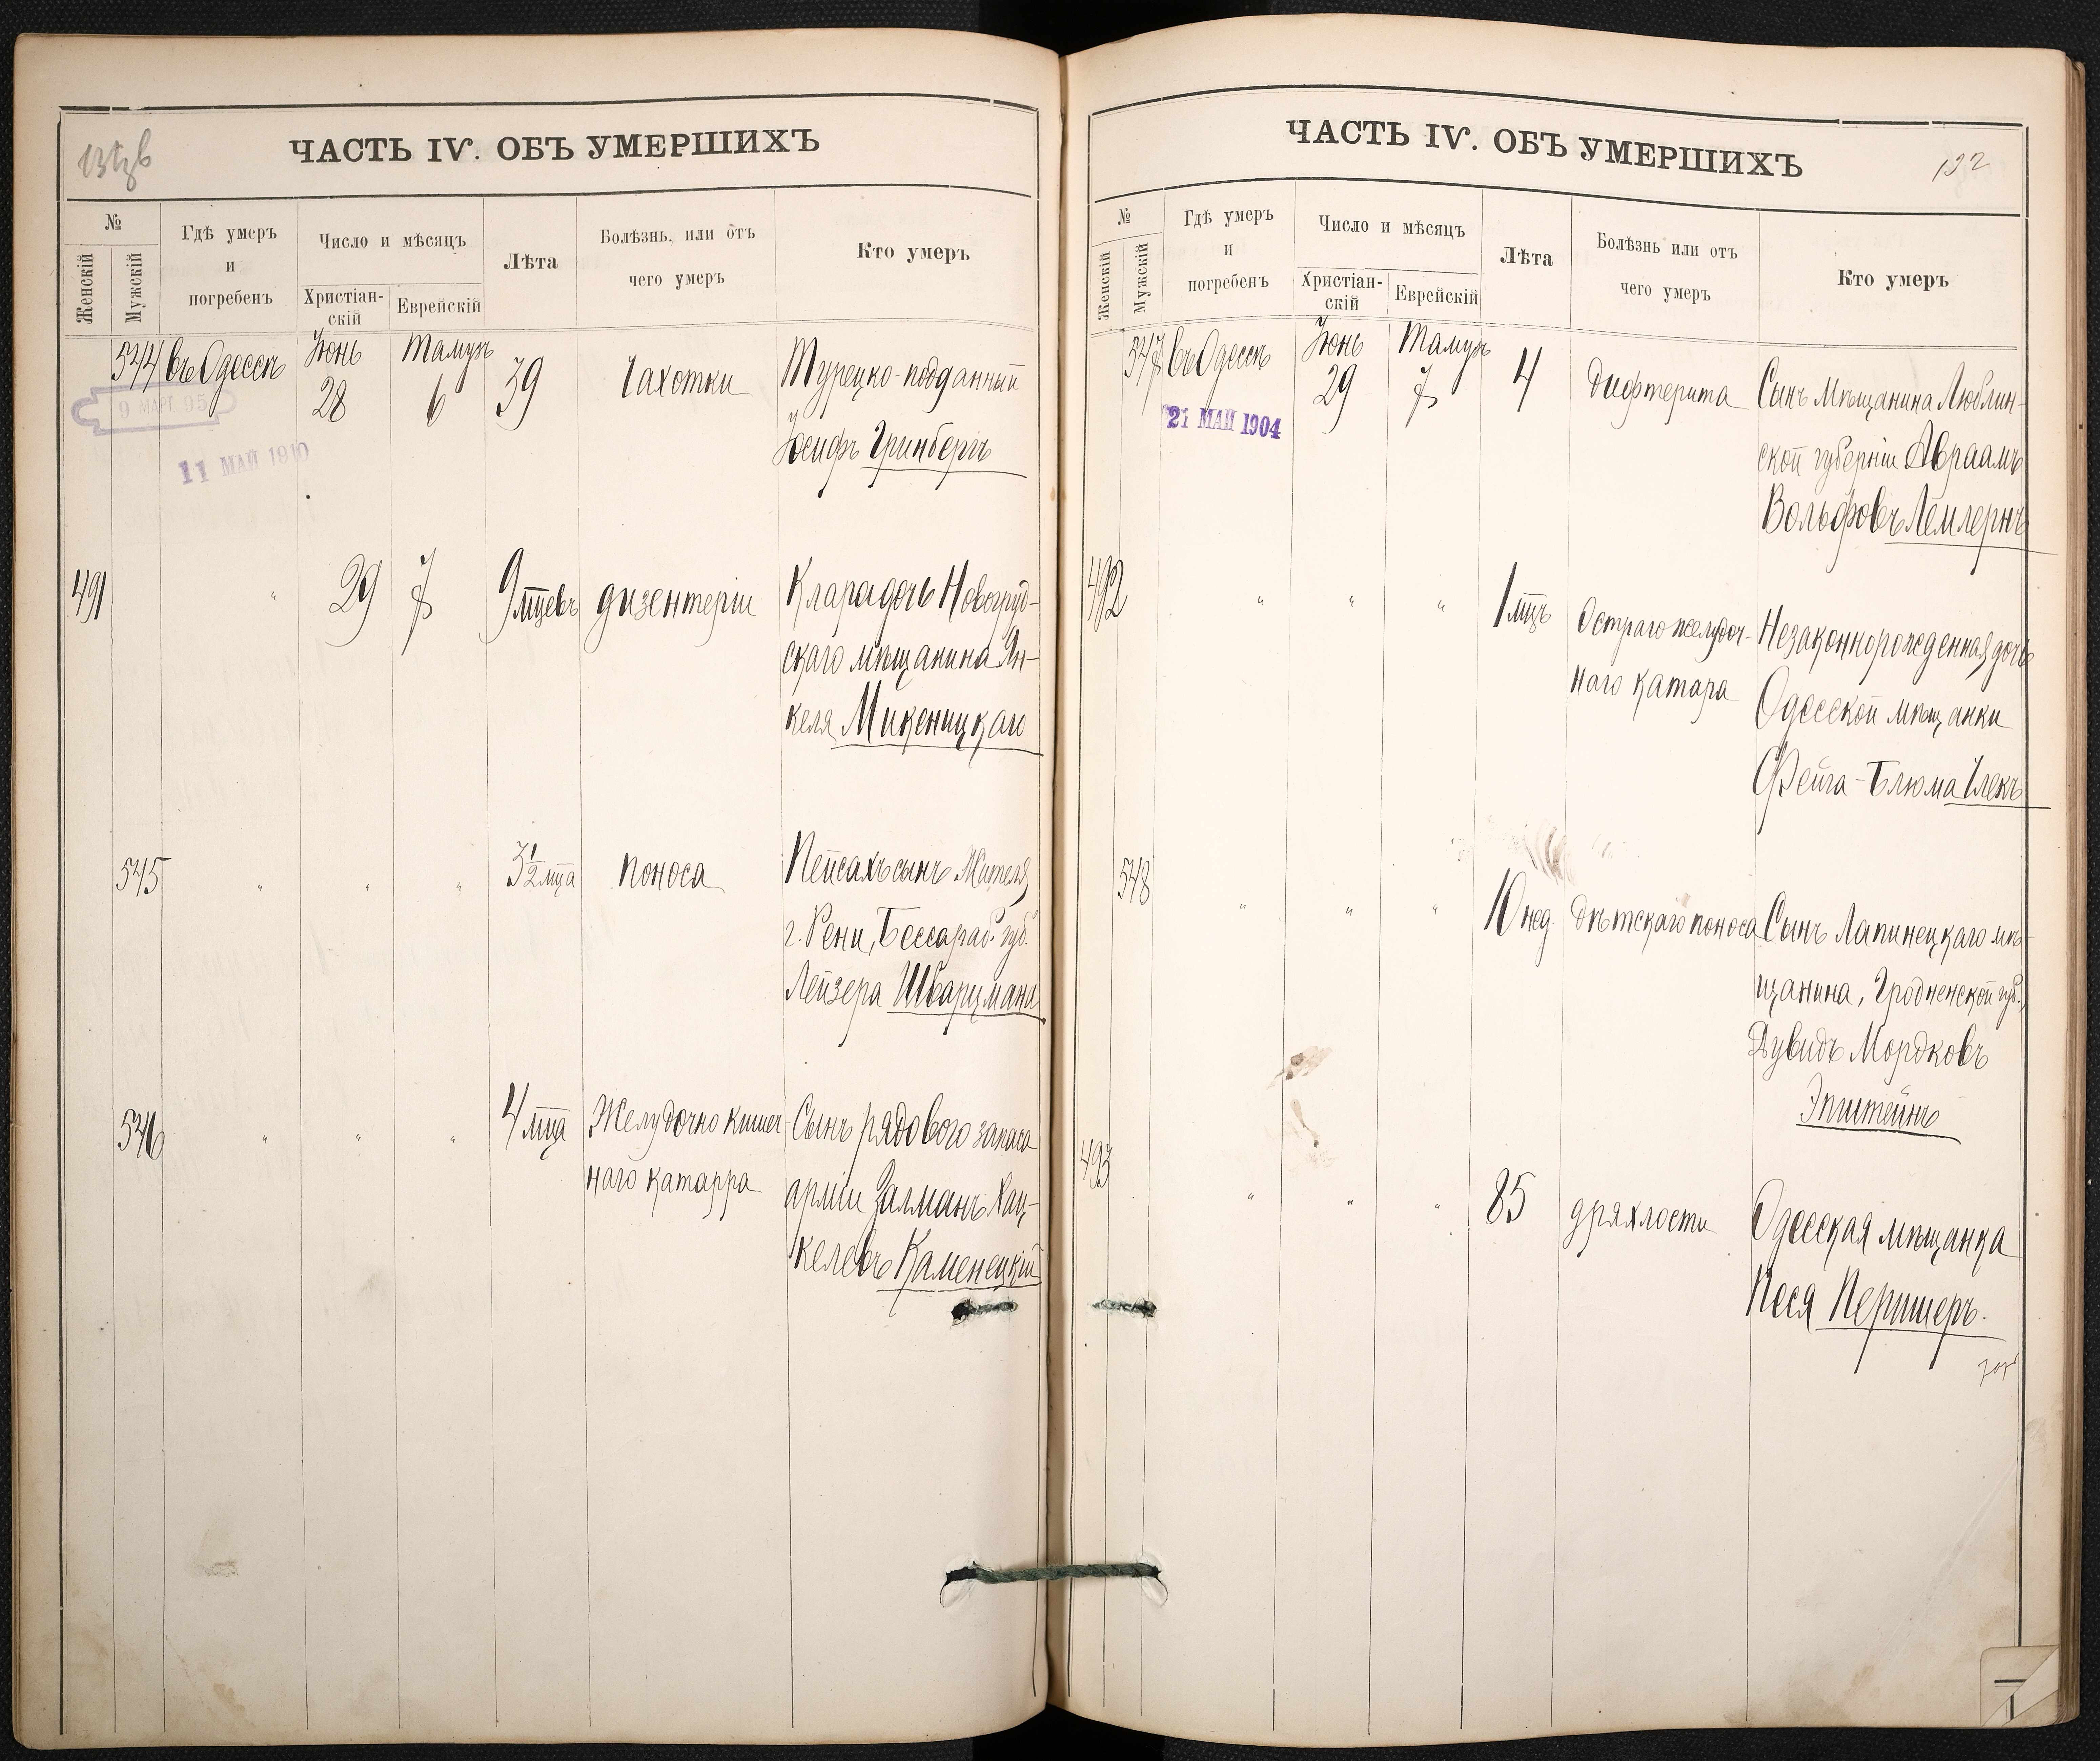 ЧАСТЬ IV. ОБЪ УМЕРШИХЪ
№
Женскій
Мужскій
Гдѣ умеръ
и
погребенъ
Число и мѣсяцъ
Христіан-
скій
Еврейскій
Лѣта
Болѣзнь, или отъ
чего умеръ
Кто умеръ
544 въ Одессѣ Іюнь 28 Тамузъ 6 39 Чахотки Турецко-подданный
Іосифъ Гринбергъ
9 МАРТ. 95
11 МАЙ 1910
491 " 29 7 9 мцевъ дизентеріи Клара дочь Новогруд-
скаго мѣщанина Ян-
келя Микеницкаго
545 " " " 3 1/2 мца поноса Пейсахъ сынъ Жителя
г. Рени, Бессараб. губ.
Лейзера Шварцмана
546 " " " 4 мца Желудочно кишеч- Сынъ рядового запаса
наго катарра арміи Залманъ Хац-
келевъ Каменецкій
ЧАСТЬ IV. ОБЪ УМЕРШИХЪ
132
№
Женскій
Мужскій
Гдѣ умеръ
и
погребенъ
Число и мѣсяцъ
Христіан-
скій
Еврейскій
Лѣта
Болѣзнь или отъ
чего умеръ
Кто умеръ
547 въ Одессѣ Іюнь 29 Тамузъ 7 4 дифтерита Сынъ мѣщанина Люблин-
ской губерніи Авраамъ
Вольфовъ Лемлернъ
21 МАЙ 1904
492 " " " 1 мцъ Остраго желудоч- Незаконнорожденная дочь
наго катара Одесской мѣщанки
Фейга-Блюма Члекъ
548 " " " 10 нед. дѣтскаго поноса Сынъ Лапинецкаго мѣ-
щанина, Гродненской губ.,
Дувидъ Мордковъ
Эпштейнъ
493 " " " 85 дряхлости Одесская мѣщанка
Песя Першеръ.